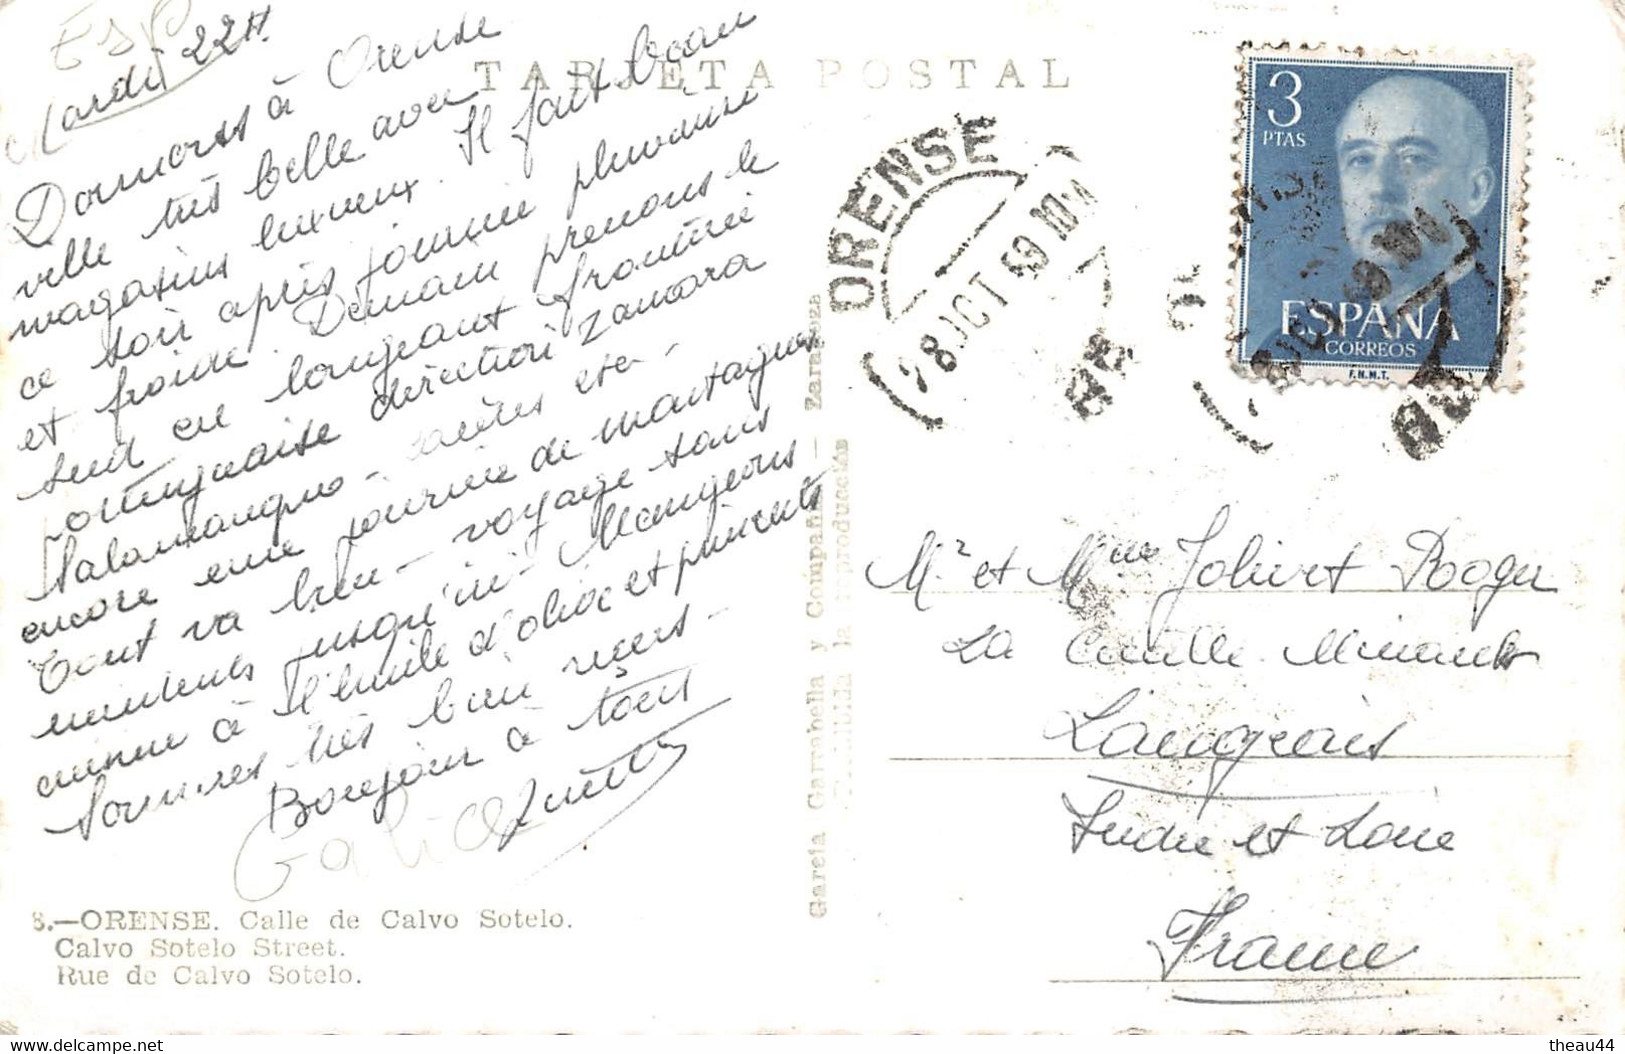 ESP
Mardi 22H
Dormons à Orense
ville très belle avec
magasins luxueux. Il fait beau
ce soir après journée pluvieuse
et froide. Demain prenons le
sud en longeant frontière
portugaise direction Zamora
Salamanque - etc -
encore une journée de montagnes
Tout va bien - voyage sans
jusqu'ici - Mangeons
à l'huile d'olive et piments
Sommes très bien reçus -
Bonjour à tous
Galice
8.—ORENSE. Calle de Calvo Sotelo.
Calvo Sotelo Street.
Rue de Calvo Sotelo.
TARJETA POSTAL
García Garrabella y Compañía — Zaragoza
la reproducción
ORENSE
28 OCT 59 10
3
PTAS
ESPAÑA
CORREOS
F.N.M.T.
Mr et Mme Jolivet Roger
La
Langeais
Indre et Loire
France
delcampe.net
theau44